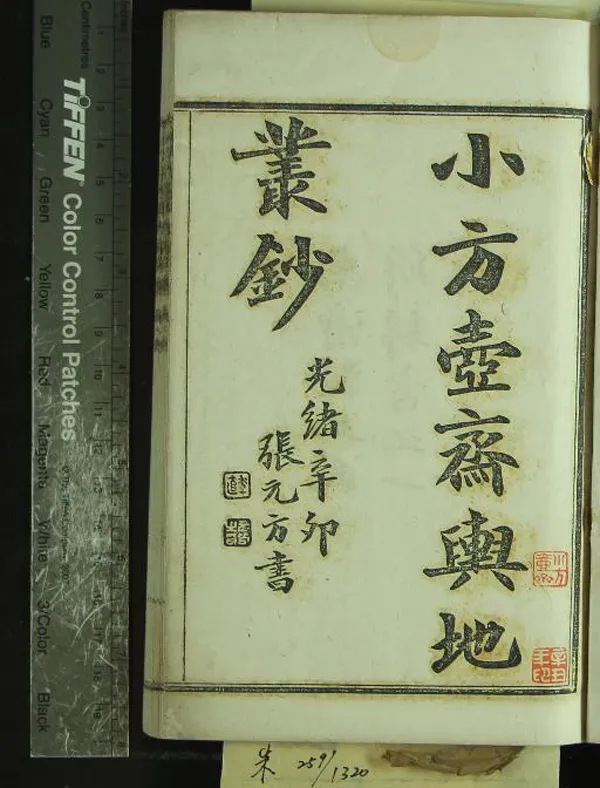 小方壺齋輿地
叢鈔
光緒辛卯
張元方書
朱 259/1320
Centimetres
Inches
TIFFEN® Color Control Patches
Blue
Cyan
Green
Yellow
Red
Magenta
White
3/Color
Black